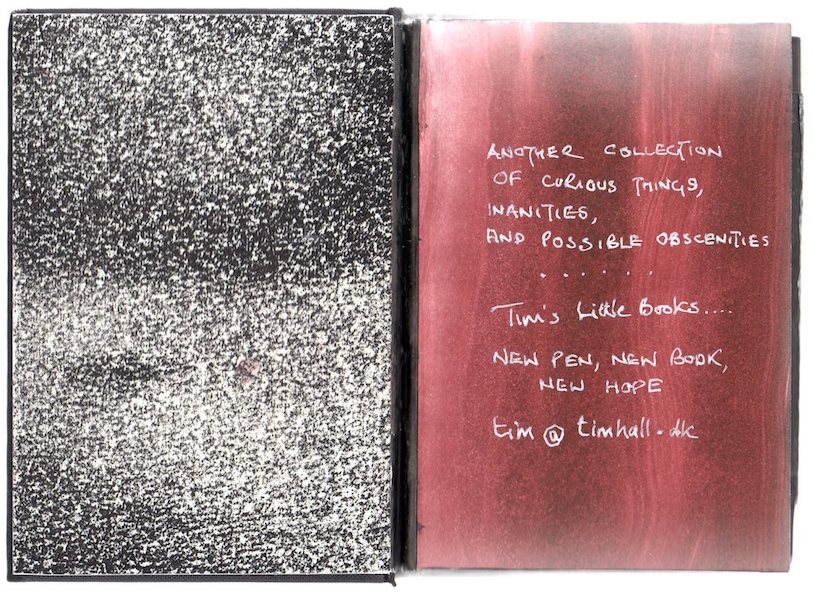 ANOTHER COLLECTION
OF CURIOUS THINGS,
INANITIES,
AND POSSIBLE OBSCENITIES
. . . . . .
Tim's Little Books....
NEW PEN, NEW BOOK,
NEW HOPE
tim @ timhall.dk